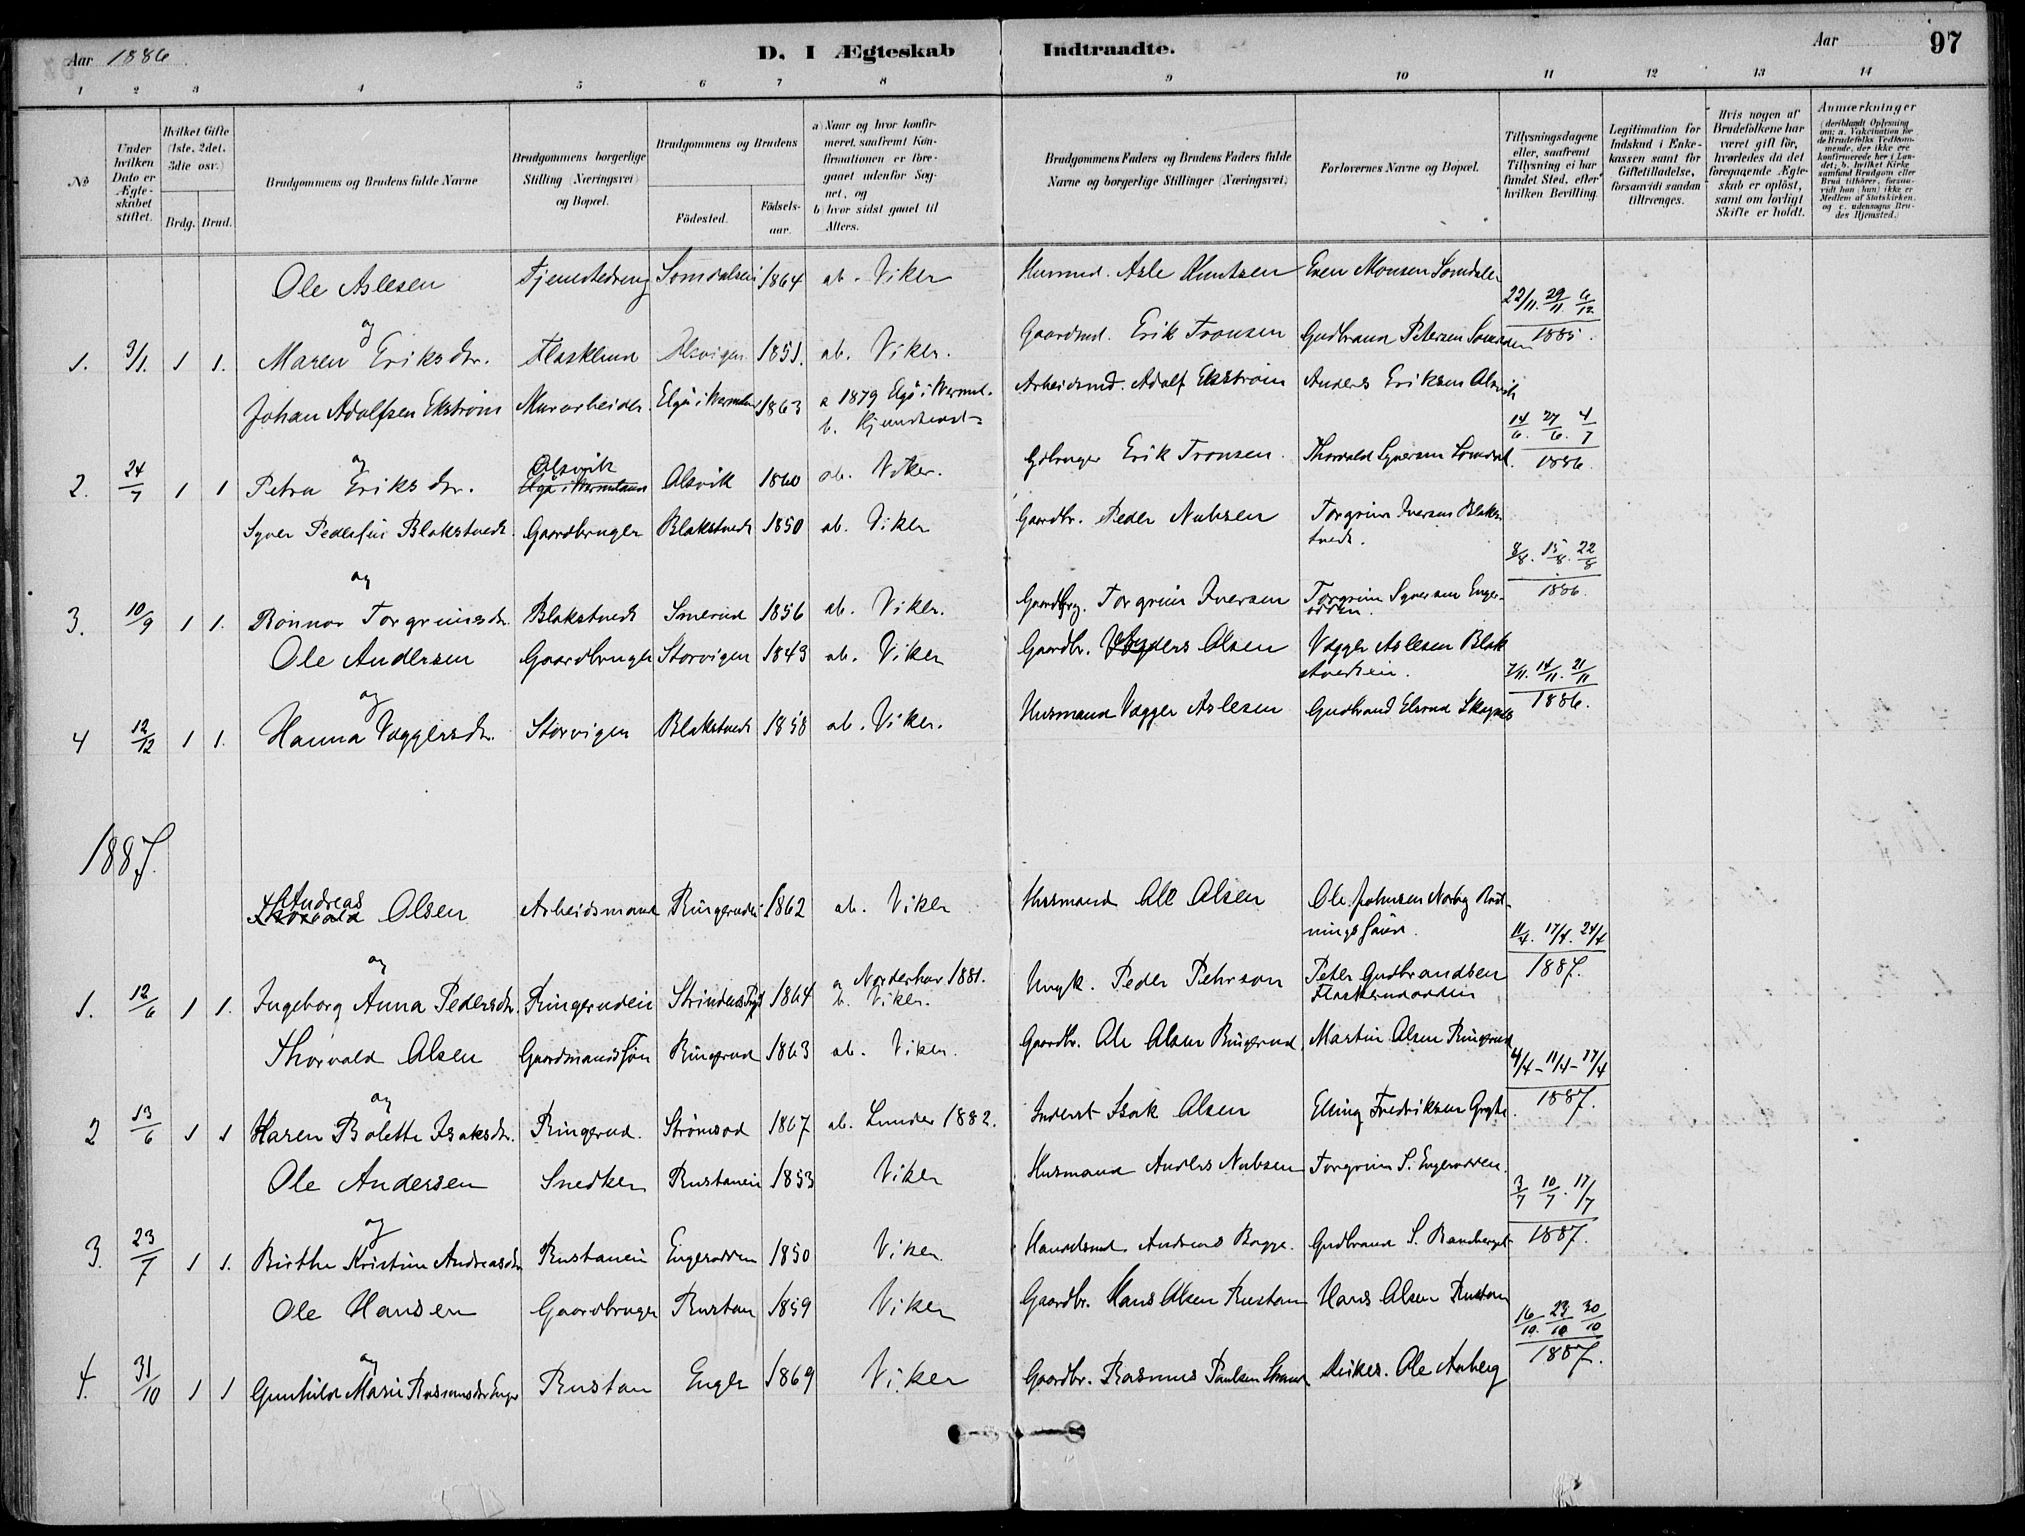 Aar 1886. D. I Ægteskab Indtraadte. Aar 97
1 2 3 4 5 6 7 8 9 10 11 12 13 14
No.
Under hvilken Dato er Ægteskabet stiftet.
Hvilket Gifte (1ste, 2det, 3die osv.)
Brdg. Brud.
Brudgommens og Brudens fulde Navne
Brudgommens borgerlige Stilling (Næringsvei) og Bopæl.
Brudgommens og Brudens
Fødested. Fødselsaar.
a) Naar og hvor konfirmeret, saafremt Konfirmationen er foregaaet udenfor Sognet, og
b) hvor sidst gaaet til Alters.
Brudgommens Faders og Brudens Faders fulde Navne og borgerlige Stillinger (Næringsvei)
Forlovernes Navne og Bopæl.
Tillysningsdagene eller, saafremt Tillysning ei har fundet Sted, efter hvilken Bevilling.
Legitimation for Indskud i Enkekassen samt for Giftetilladelse, forsaavidt saadan tiltrænges.
Hvis nogen af Brudefolkene har været gift før, hvorledes da det foregaaende Ægteskab er opløst, samt om lovligt Skifte er holdt.
Anmærkninger (deriblandt Oplysning om: a. Vakcination for de Brudefolks Vedkommende, der ikke ere konfirmerede her i Landet; b. hvilket Kirkesamfund Brudgom eller Brud tilhører, forsaavidt han (hun) ikke er Medlem af Statskirken, og c. udensogns Brudes Hjemsted.)
Ole Aslesen Tjenestedreng Somdalseie 1864 ab. Viker Husmd. Asle Knutsen Even Monsen Somdalen 22/11. 29/11 6/12
og
1. 3/1. 1 1. Maren Eriksdr. Alsvigen 1851. ab. Viker. Gaardmd. Erik Tronsen Gudbrand Petersen 1885.
Johan Adolfsen Ekstrøm Murarbeider. Elgå i Vermland 1863 a 1879 Elgå i Vermel. Arbeidsmd. Adolf Ekstrøm Anders Eriksen Alsvik
b. 14/6. 27/6. 4/7
og Olsvik
2. 24/7 1 1 Petra Eriksdr. Elgå i Vermland Alsvik 1860 ab. Viker. Gdbruger Erik Tronsen. Thorvald Syversen Somdal. 1886.
Syver Pedersen Blakstvedt. Gaardbruger Blakstvedt 1850 ab. Viker Gaardbr. Peder Nubsen Torgrim Iversen Blakstvedt.
og 8/8. 15/8. 22/8
3. 10/9 1 1. Rønnov Torgrimsdr. Blakstvedt Smerud 1856 ab. Viker. Gaardbrg. Torgrim Iversen Torgrim Syversen Engerodden. 1886.
Ole Andersen Gaardbruger Storvigen 1843 ab. Viker Gaardbr. Anders Olsen Vegger Aslesen Blakstvedteie. 7/11. 14/11. 21/11
og
4 12/12 1 1. Hanna Veggersdr. Storvigen Blakstvedt 1858 ab. Viker. Husmand Vegger Aslesen Gudbrand Elsrud Skagnes 1886.
1887.
Andreas
Thorvald Olsen Arbeidsmand Ringerudeie 1862 ab. Viker Husmand Ole Olsen Ole Johnsen
11/4. 17/4. 24/4
og a Norderhov 1881.
1. 12/6 1 1. Ingeborg Anna Pedersdr. Ringerudeie 1864 b. Viker. Peder Pehrson Peter Gudbrandsen 1887.
Thorvald Olsen Gaardmandssøn Ringerud 1863 ab. Viker. Gaardbr. Ole Olsen Ringerud Martin Olsen Ringerud 4/4 - 11/4 - 17/4
og
2 13/6 1 1 Karen Bolette Isaksdr. Ringerud. Strømsod 1867 ab. Lunder 1882. Inderst Isak Olsen Elling Fredriksen 1887.
Ole Andersen Snedker Rustaneie 1853 Viker Husmand Anders Nubsen Torgrim S. Engerodden. 3/7 10/7. 17/7
og
3. 23/7 1 1. Birthe Kristine Andreasdr Rustaneie Engerodden 1850 Viker Handelsmd. Andreas Bagge. Gudbrand S. 1887.
Ole Hansen Gaardbruger Rustan 1859 Viker Gaardbr. Hans Olsen Rustan Hans Olsen Rustan 16/10. 23/10 30/10
og
4. 31/10 1 1 Gunhild Marie Rasmusdr Enger Rustan Enger 1869 Viker Gaardbr. Rasmus Paulsen Ole Aaberg 1887.